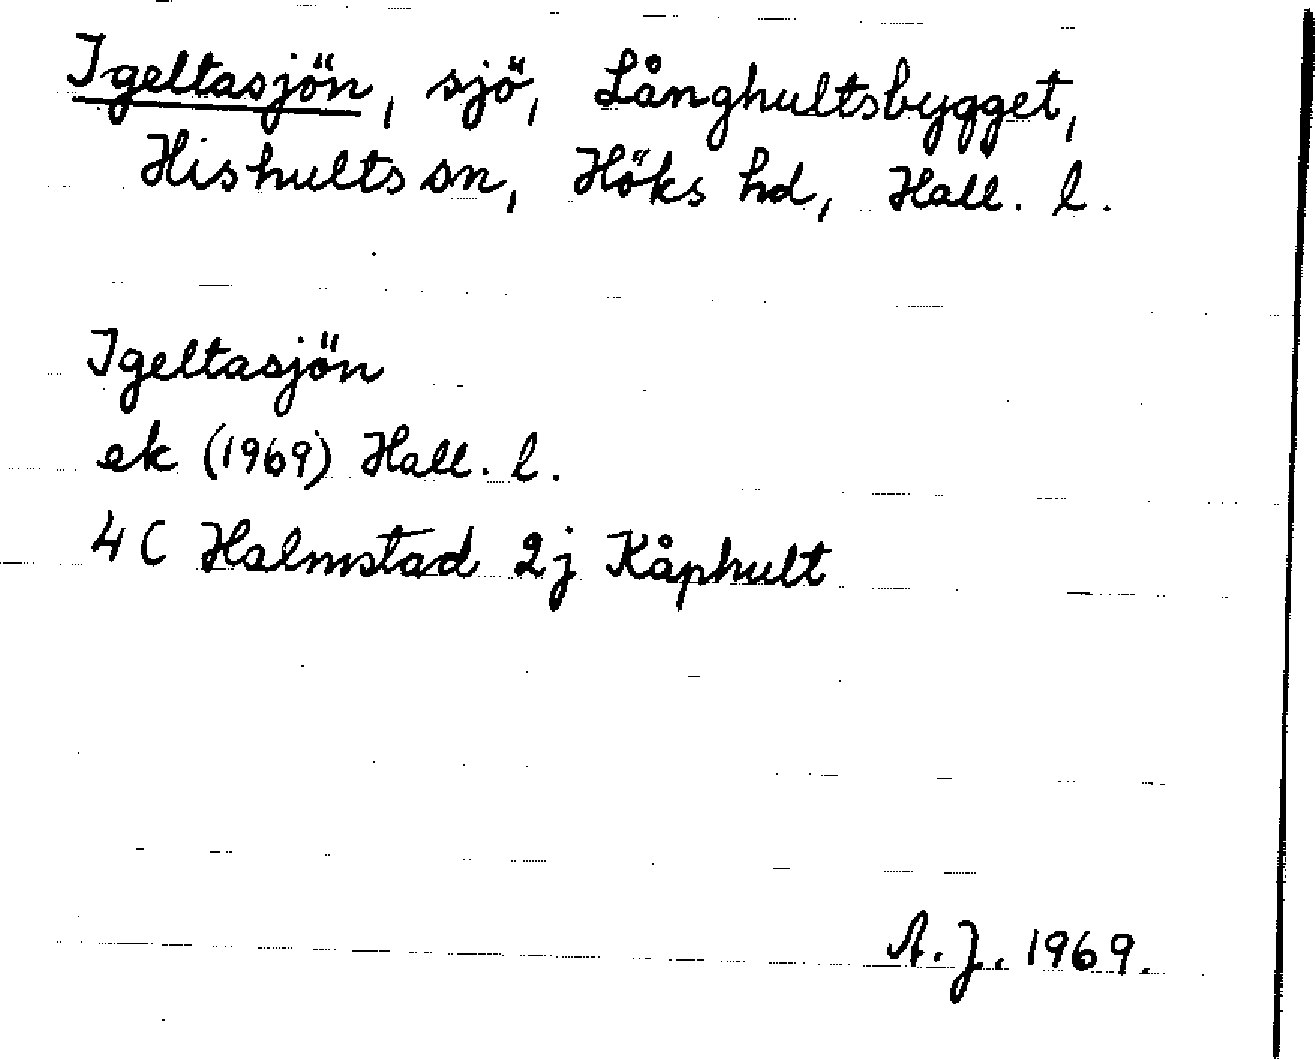 Igeltasjön, sjö, Långhultsbygget,
Hishults sn, Höks hd, Hall. l.
Igeltasjön
ek (1969) Hall. l.
4C Halmstad 2j Kåphult
A.J. 1969.